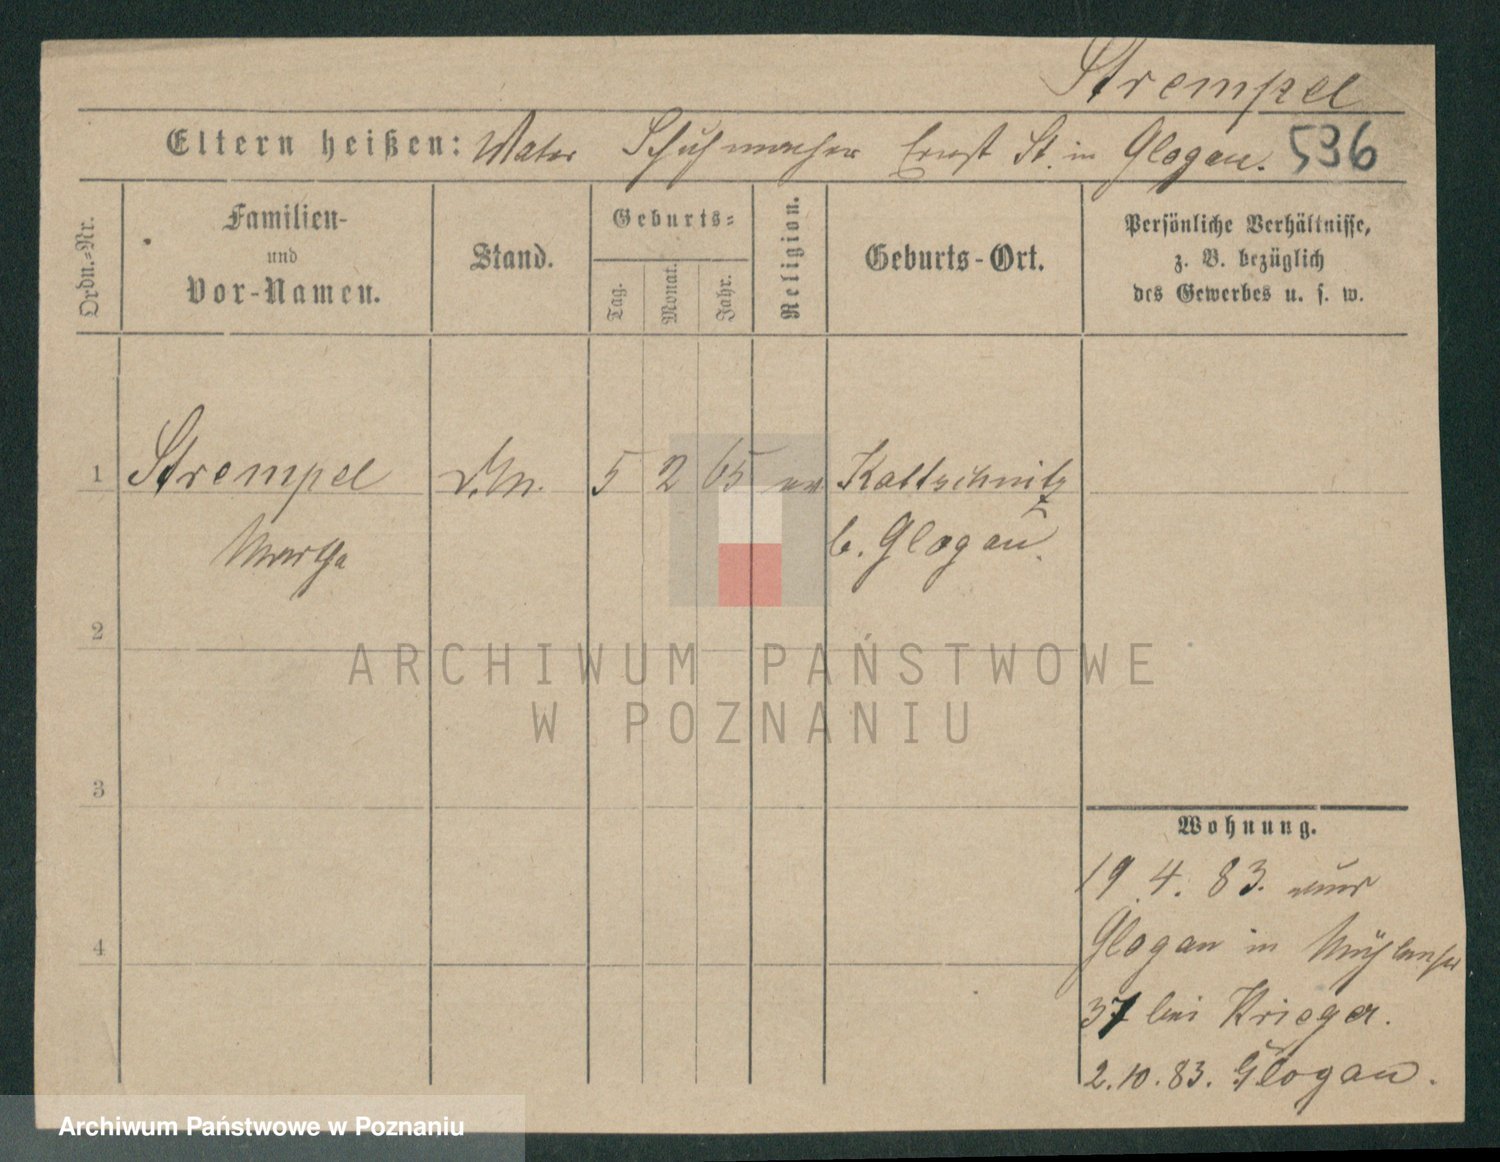 Strempel
Eltern heißen: Vater Schuhmacher Ernst St. in Glogau. 536
Ordn.-Nr.
Familien-
und
Vor-Namen.
Stand.
Geburts-
Tag.
Monat.
Jahr.
Religion.
Geburts-Ort.
Persönliche Verhältnisse,
z. B. bezüglich
des Gewerbes u. s. w.
1 Strempel D.M. 5 2 65 ev Kaltschnitz
b. Glogau.
2
3
4
Wohnung.
19.4.83. aus
Glogau in
37 bei Krieger.
2.10.83. Glogau.
ARCHIWUM PAŃSTWOWE
W POZNANIU
Archiwum Państwowe w Poznaniu